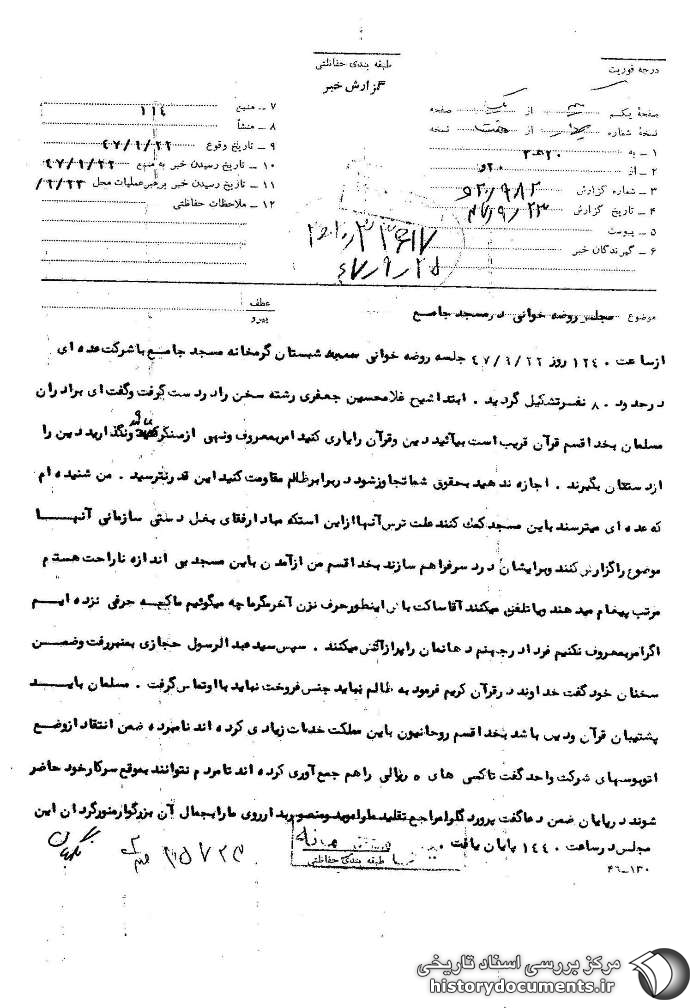 طبقه بندی حفاظتی
گزارش خبر
درجه فوریت
صفحهٔ یکم از یک صفحه
نسخهٔ شماره چهار از هفت نسخه
۱ ـ به ۲۰ هـ ۳
۲ ـ از ۲۰ و
۳ ـ شماره گزارش
۴ ـ تاریخ گزارش ۴۷/۹/۲۳
۵ ـ پیوست
۶ ـ گیرندگان خبر
۷ ـ منبع ۱۱۴
۸ ـ منشأ
۹ ـ تاریخ وقوع ۴۷/۹/۲۲
۱۰ ـ تاریخ رسیدن خبر به منبع ۴۷/۹/۲۲
۱۱ ـ تاریخ رسیدن خبر برهبر عملیات محل ۹/۲۳/
۱۲ ـ ملاحظات حفاظتی
۴۷/۹/۲۵
موضوع مجلس روضه خوانی در مسجد جامع
عطف
پیرو
از ساعت ۱۲۴۰ روز ۴۷/۹/۲۲ جلسه روضه خوانی شبستان گرمخانه مسجد جامع با شرکت عده ای
در حدود ۸۰ نفر تشکیل گردید . ابتدا شیخ غلامحسین جعفری رشته سخن را در دست گرفت و گفت ای برادران
مسلمان بخدا قسم قرآن غریب است بیائید دین و قرآن را یاری کنید امر بمعروف و نهی از منکر ونگذارید دین را
از دستتان بگیرند . اجازه ندهید بحقوق شما تجاوز شود در برابر ظالم مقاومت کنید این قدر نترسید . من شنیده ام
که عده ای میترسند باین مسجد کمک کنند علت ترس آنها از این است که مبادا رفقای بغل دستی سازمانی آنها
موضوع را گزارش کنند و برایشان درد سر فراهم سازند بخدا قسم من از آمدن باین مسجد بی اندازه ناراحت هستم
مرتب پیغام میدهند و یا تلفن میکنند آقا ساکت باش اینطور حرف نزن آخر مگر ما چه میگوئیم ما که حرفی نزده ایم
اگر امر بمعروف نکنیم فردا در جهنم دهانمان را پر از آتش میکنند . سپس سید عبدالرسول حجازی بمنبر رفت و ضمن
سخنان خود گفت خداوند در قرآن کریم فرمود به ظالم نباید جنس فروخت نباید با او تماس گرفت . مسلمان باید
پشتیبان قرآن و دین باشد بخدا قسم روحانیون باین مملکت خدمات زیادی کرده اند نامبرده ضمن انتقاد از وضع
اتوبوسهای شرکت واحد گفت تاکسی های ۵ ریالی را هم جمع آوری کرده اند تا مردم نتوانند بموقع سر کار خود حاضر
شوند در پایان ضمن دعا گفت پروردگارا مراجع تقلید ما را موید و منصور بدار روی ما را بجمال آن بزرگوار منور گردان این
مجلس در ساعت ۱۴۴۰ پایان یافت .
طبقه بندی حفاظتی
۴۶-۱۳۰
مرکز بررسی اسناد تاریخی
historydocuments.ir